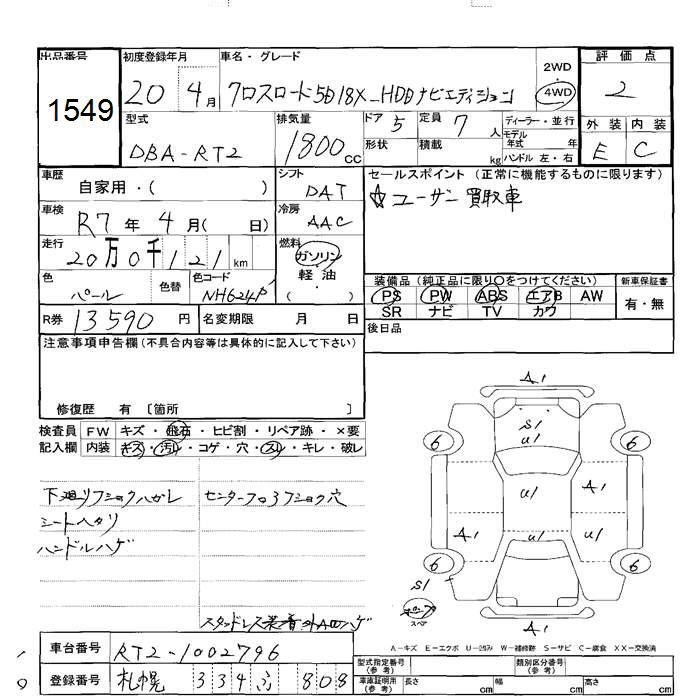 出品番号
1549
初度登録年月
20 4月
車名・グレード
クロスロード5D18X_HDDナビエディション
2WD
4WD
評価点
2
外装 内装
E C
型式
DBA-RT2
排気量
1800cc
ドア 5
定員 7人
形状
積載 kg
ディーラー・並行
モデル年式 年
ハンドル 左・右
車歴
自家用・( )
シフト
DAT
車検
R7年4月( 日)
冷房
AAC
走行
20万0千121km
燃料
ガソリン
軽油
( )
色
パール
色替
色コード
NH624P
セールスポイント (正常に機能するものに限ります)
☆ユーザー買取車
装備品 (純正品に限り○をつけてください)
PS PW ABS エアB AW
SR ナビ TV カワ
新車保証書
有・無
後日品
R券 13590円
名変期限 月 日
注意事項申告欄(不具合内容等は具体的に記入して下さい)
修復歴 有 〔箇所 〕
検査員記入欄
FW キズ・飛石・ヒビ割・リペア跡・×要
内装 キズ・汚レ・コゲ・穴・スレ・キレ・破レ
下廻リフショクハガレ
シートヘタリ
ハンドルハゲ
センターフロアフショク穴
スタッドレス装着
A1
S1
U1
6
6
U1
A1
A1
U1
6
6
S1
スペア
A1
A-キズ E-エクボ U-凹み W-補修跡 S-サビ C-腐食 XX-交換済
車台番号
RT2-1002796
登録番号
札幌 334 ふ 808
型式指定番号
(参考)
類別区分番号
(参考)
車庫証明用
(参考)
長さ cm
幅 cm
高さ cm